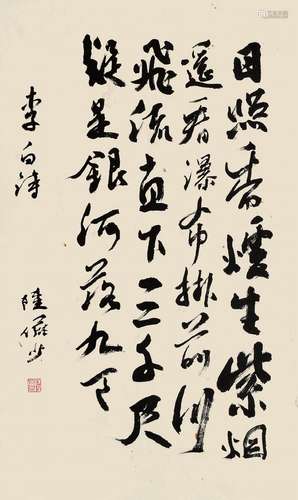 日照香爐生紫烟
遥看瀑布掛前川
飛流直下三千尺
疑是銀河落九天
李白詩
陸儼少